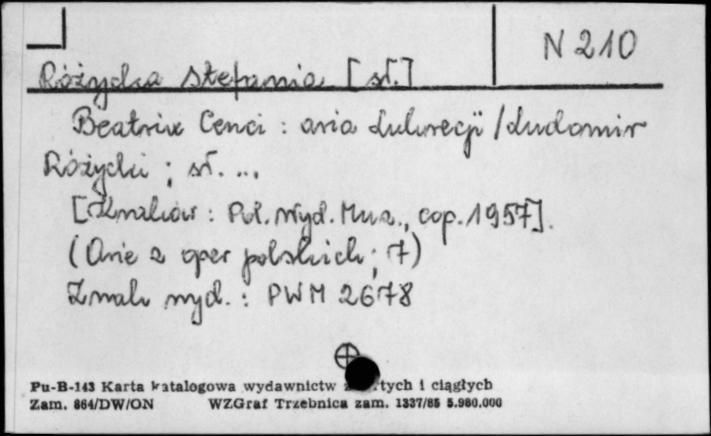 N 210
Różycka Stefania [sł.]
Beatrix Cenci : aria Lukrecji / Ludomir
Różycki ; sł. ...
[Kraków : Pol. Wyd. Muz., cop. 1957].
(Arie z oper polskich ; 7)
Znak wyd. : PWM 2678
Pu-B-143 Karta katalogowa wydawnictw i ciągłych
Zam. 864/DW/ON WZGraf Trzebnica zam. 1337/85 5.980.000